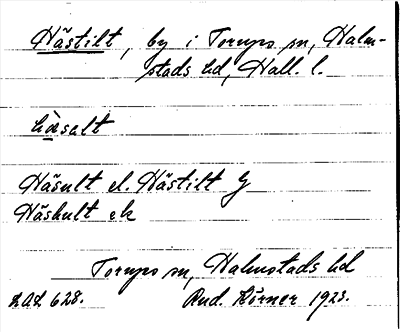 Hästilt, by i Torups sn, Halm-
stads hd, Hall. l.
hä̀salt
Häsult el. Hästilt G
Häshult ek
Torups sn, Halmstads hd
LAL 628. Rud. Körner 1923.